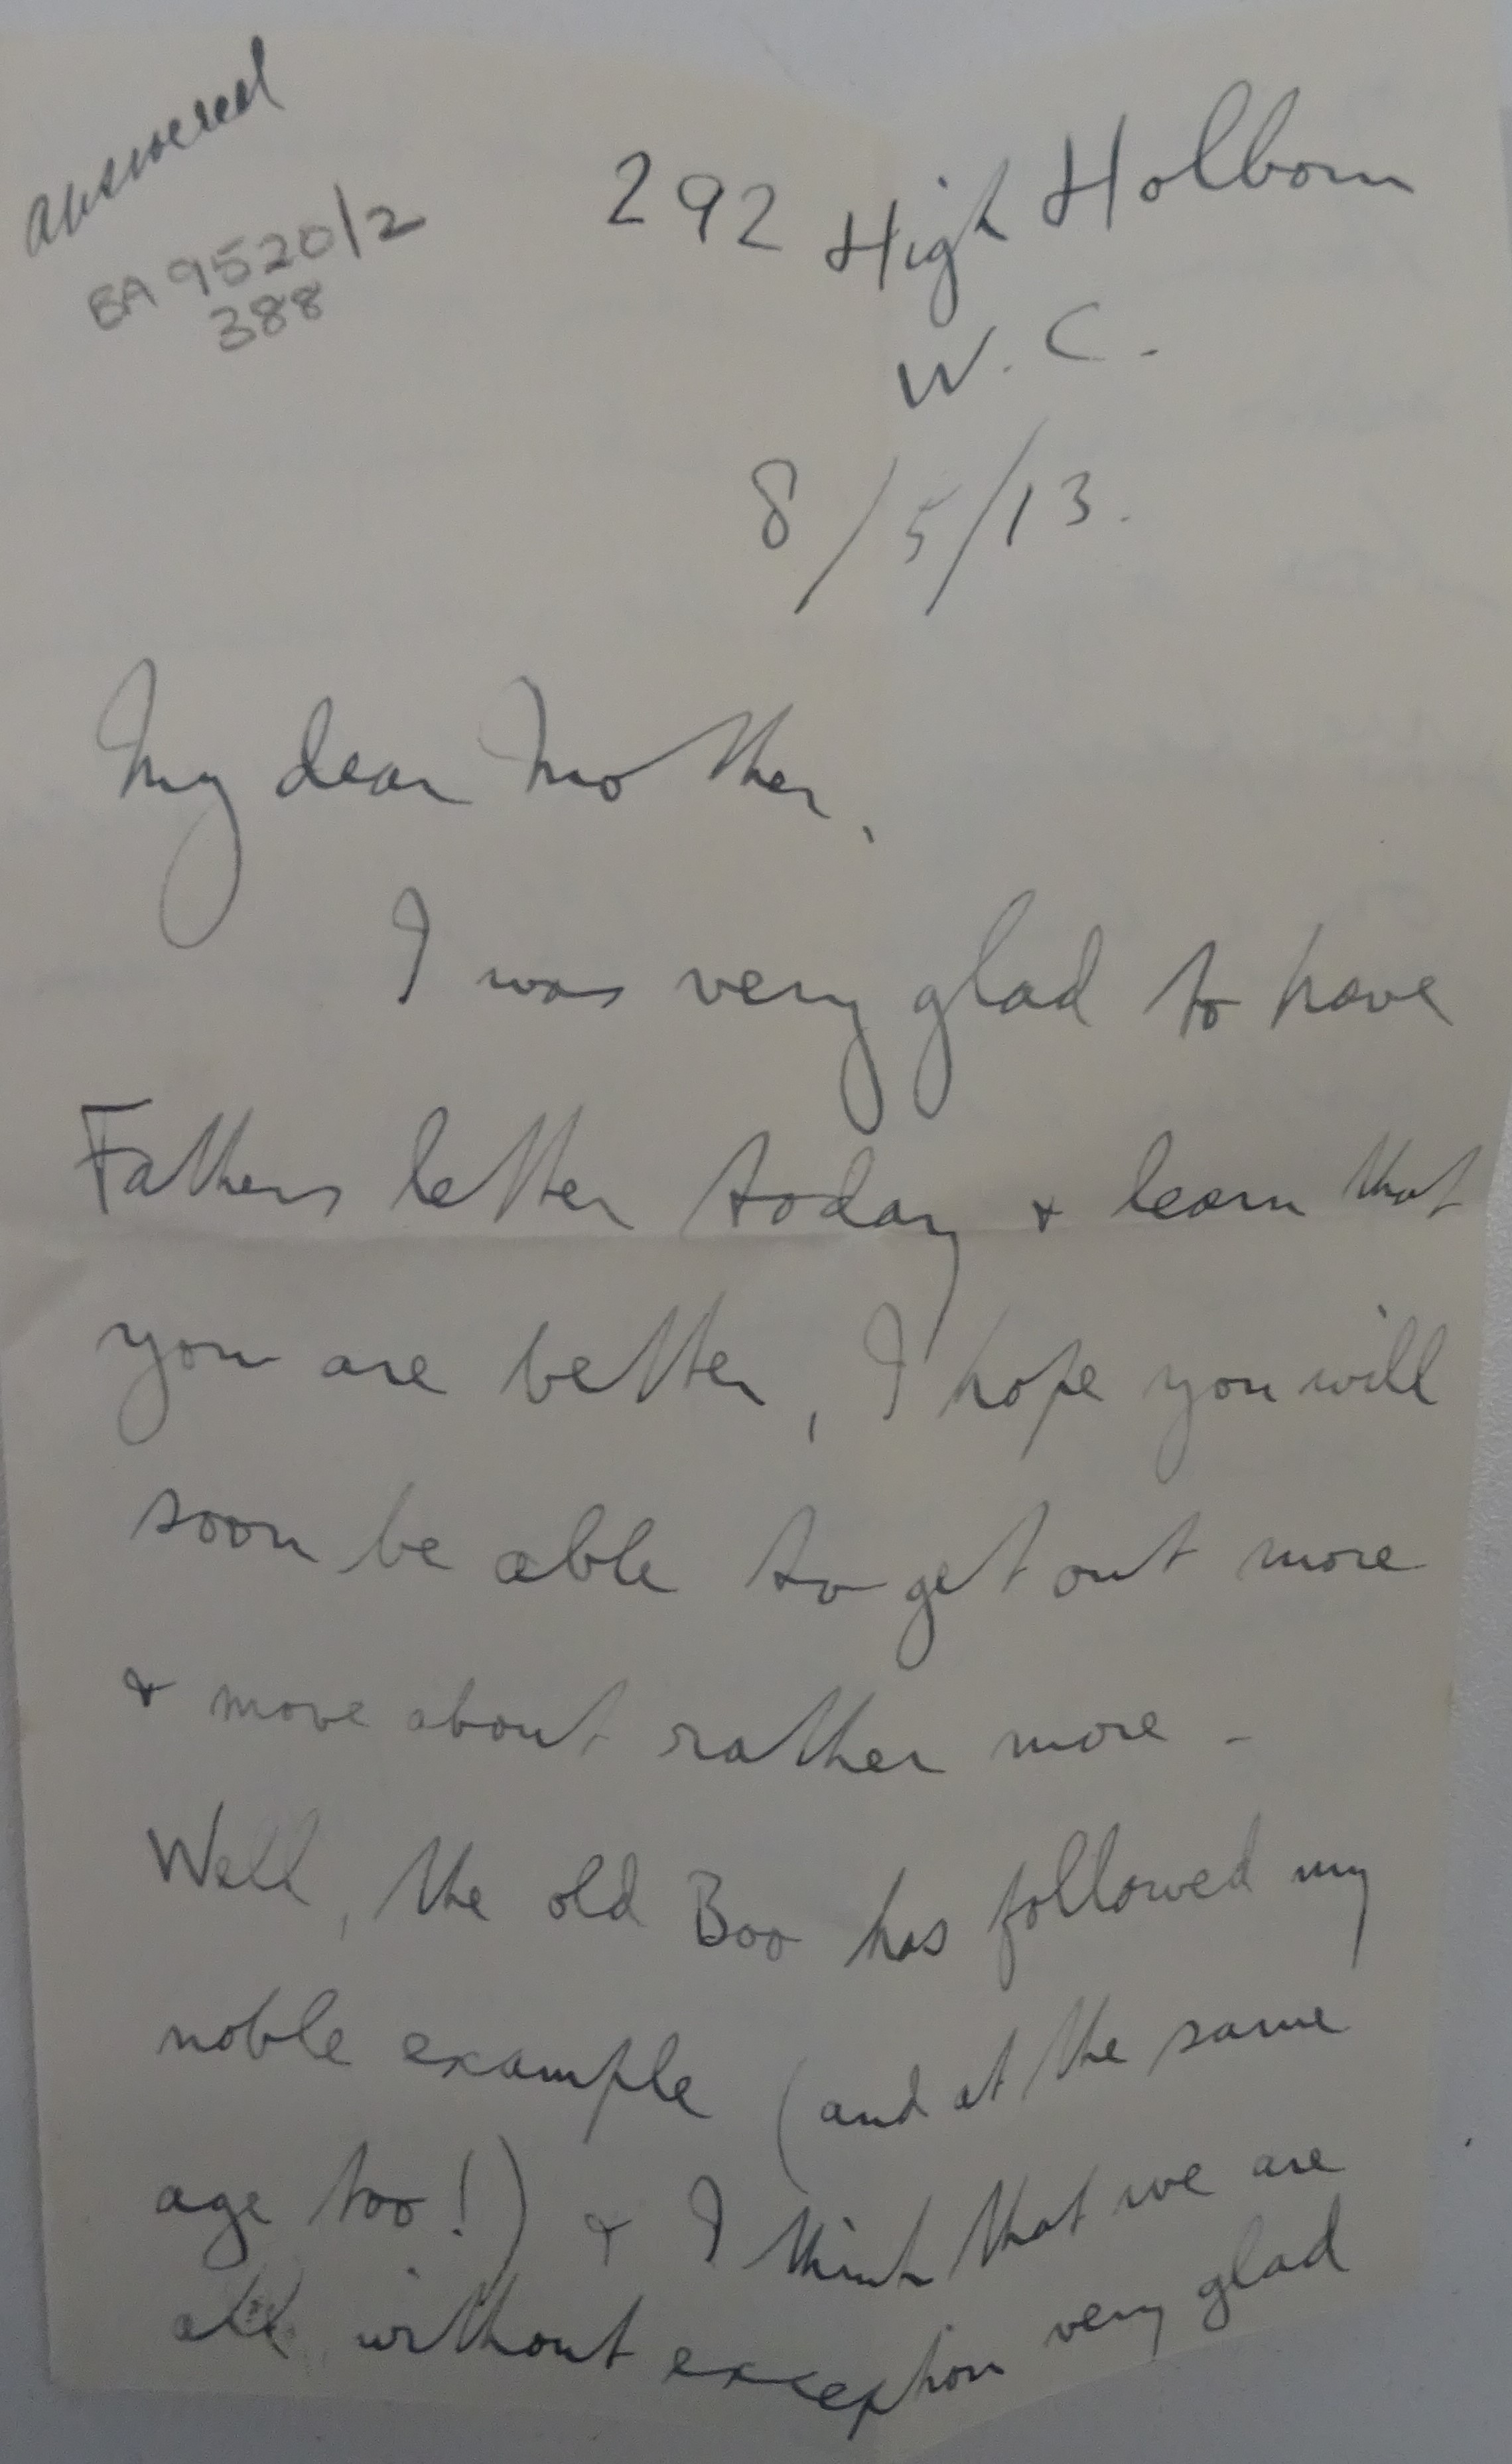 answered
BA 9520/2
388
292 High Holborn
W. C.
8/5/13.
My dear Mother,
I was very glad to have
Fathers letter today & learn that
you are better, I hope you will
soon be able to get out more
& move about rather more -
Well, the old Boo has followed my
noble example (and at the same
age too!) & I think that we are
all without exception very glad